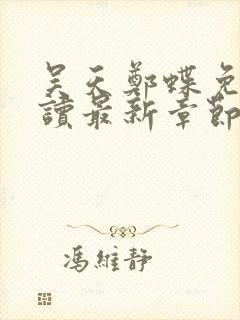 吴天鄭蝶免
讀最新章節
馮維靜